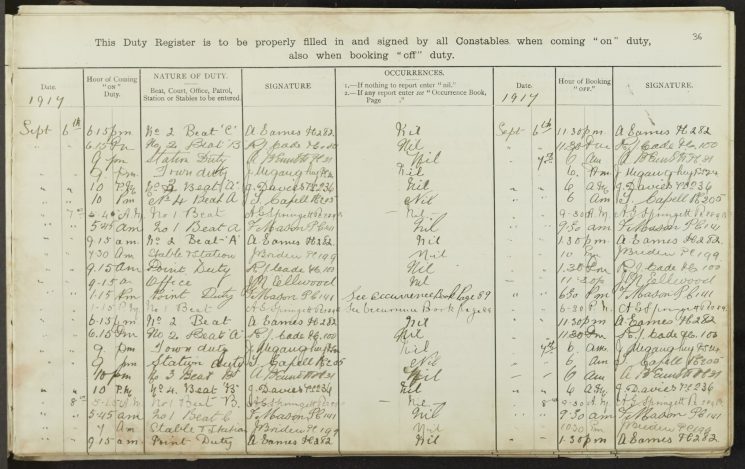 36
This Duty Register is to be properly filled in and signed by all Constables when coming "on" duty,
also when booking "off" duty.
Date. Hour of Coming "on" Duty. NATURE OF DUTY. Beat, Court, Office, Patrol, Station or Stables to be entered. SIGNATURE OCCURRENCES. 1.—If nothing to report enter "nil." 2.—If any report enter see "Occurrence Book, Page Date. Hour of Booking "OFF." SIGNATURE.
1917 1917
Sept 6th 6.15 pm No 2 Beat 'C' A Eames PC 282 Nil Sept 6th 11.30 pm A Eames PC 282
6.15 Pm No 2 Beat B R J Cade PC 100 Nil 11.30 Pm R J Cade PC 100
9 pm Station Duty Nil 7th 6 Am
9 pm Town duty Nil 6 Am
10 Pm Beat 'A' J. Davies PC 236 Nil 6 Am J. Davies PC 236
10 Pm No 4 Beat A Capell PC 205 Nil 6 Am Capell PC 205
7th 5.45 A.M. No 1 Beat A G Springett Nil 9-30 A.M. A G Springett
5.45 am No 1 Beat A T Mason PC 141 Nil 9.30 am T Mason PC 141
9.15 am No 2 Beat 'A' A Eames PC 282 Nil 1.30 pm A Eames PC 282
7.30 Am Stable & Station J Briden PC 199 Nil 10 Pm J Briden PC 199
9.15 am Point Duty R J Cade PC 100 Nil 1.30 Pm R J Cade PC 100
9.15 a Office Ellwood Nil Ellwood
1.15 Pm Point Duty T Mason PC 141 See Occurrence Book Page 89 6.30 Pm T Mason PC 141
No 1 Beat A G Springett See Occurrence Book page A G Springett
6.15 pm No 2 Beat A Eames PC 282 Nil 11.30 pm A Eames PC 282
6.15 Pm No 2 Beat 'A' R J Cade PC 100 Nil 11.30 Pm R J Cade PC 100
9 pm Town duty Nil 6 am
9 pm Station duty Capell PC 205 Nil 6 Am Capell PC 205
10 pm 3 Beat Nil 6 Am
10 Pm No 4 Beat 'B' J. Davies PC 236 Nil 6 Am J. Davies PC 236
8th No 1 Beat B A G Springett Nil 8th 9-30 A.M. A G Springett
5.45 am No 1 Beat C T Mason PC 141 Nil 9.30 am T Mason PC 141
7 Am Stable & Station J Briden PC 199 Nil 10.30 Pm J Briden PC 199
9.15 am Point Duty A Eames PC 282 Nil 1.30 pm A Eames PC 282